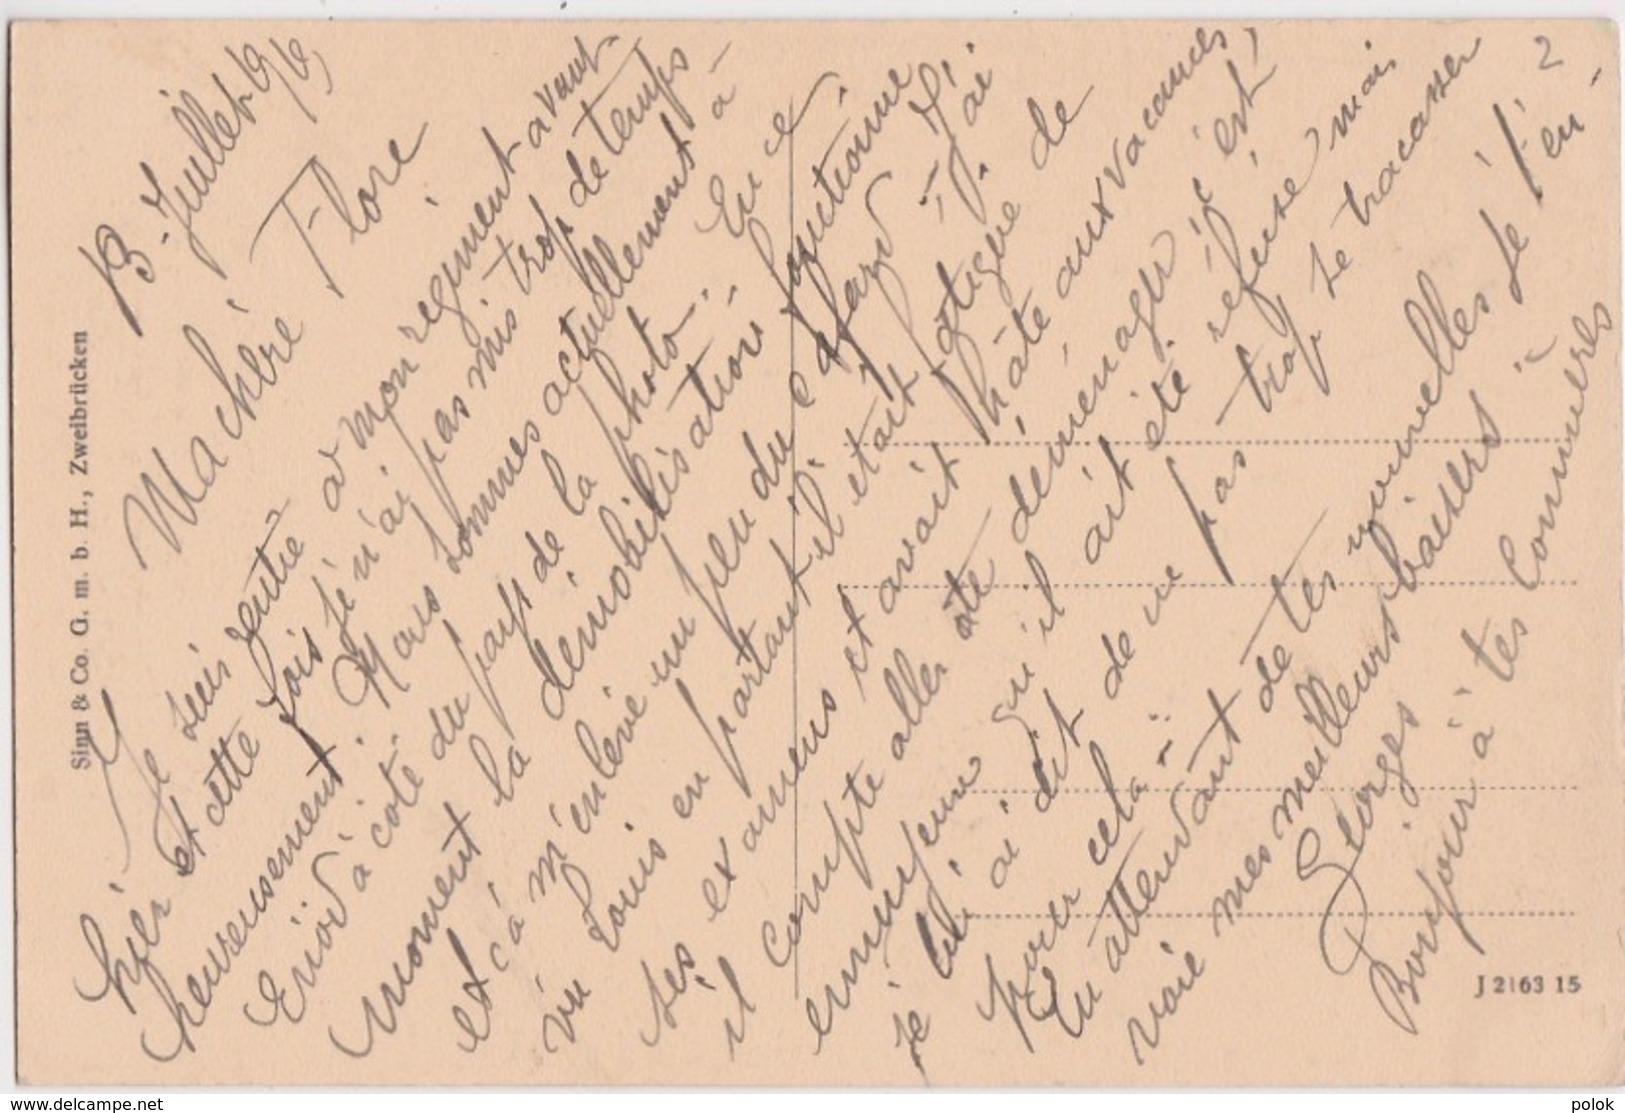 13 Juillet 1919
Ma chère
Flore
Je suis rentré à mon régiment avant-
hier et cette fois je n'ai pas mis trop de temps
heureusement. Nous sommes actuellement à
à côté du pays de la photo. En ce
moment la démobilisation fonctionne
et ça m'enlève un peu du cafard. J'ai
vu Louis en partant il était fatigué de
ses examens et avait hâte aux vacances,
il compte aller ote déménager c'est
ennuyeux qu'il ait été refusé mais
je lui ai dit de ne pas trop se tracasser
pour cela
En attendant de tes nouvelles je t'en-
voie mes meilleurs baisers
Georges
Bonjour à tes Commères
2
Sinn & Co. G. m. b. H., Zweibrücken
J 2163 15
www.delcampe.net
polok